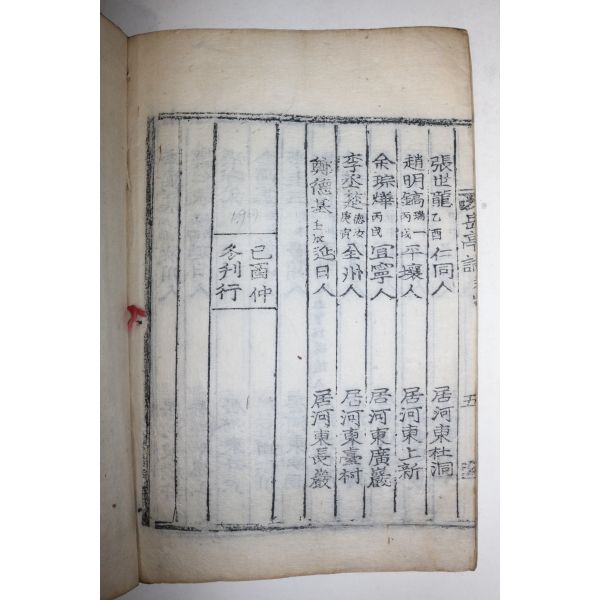 岳亭
五
張世龍 乙酉 仁同人 居河東杜洞
趙明鎬 瑞一 丙戌 平壤人 居河東上新
余琮燁 丙戌 宜寧人 居河東廣巖
李丞楚 德汝 庚寅 全州人 居河東臺村
鄭德基 壬辰 延日人 居河東長巖
己酉仲
冬刊行
1909